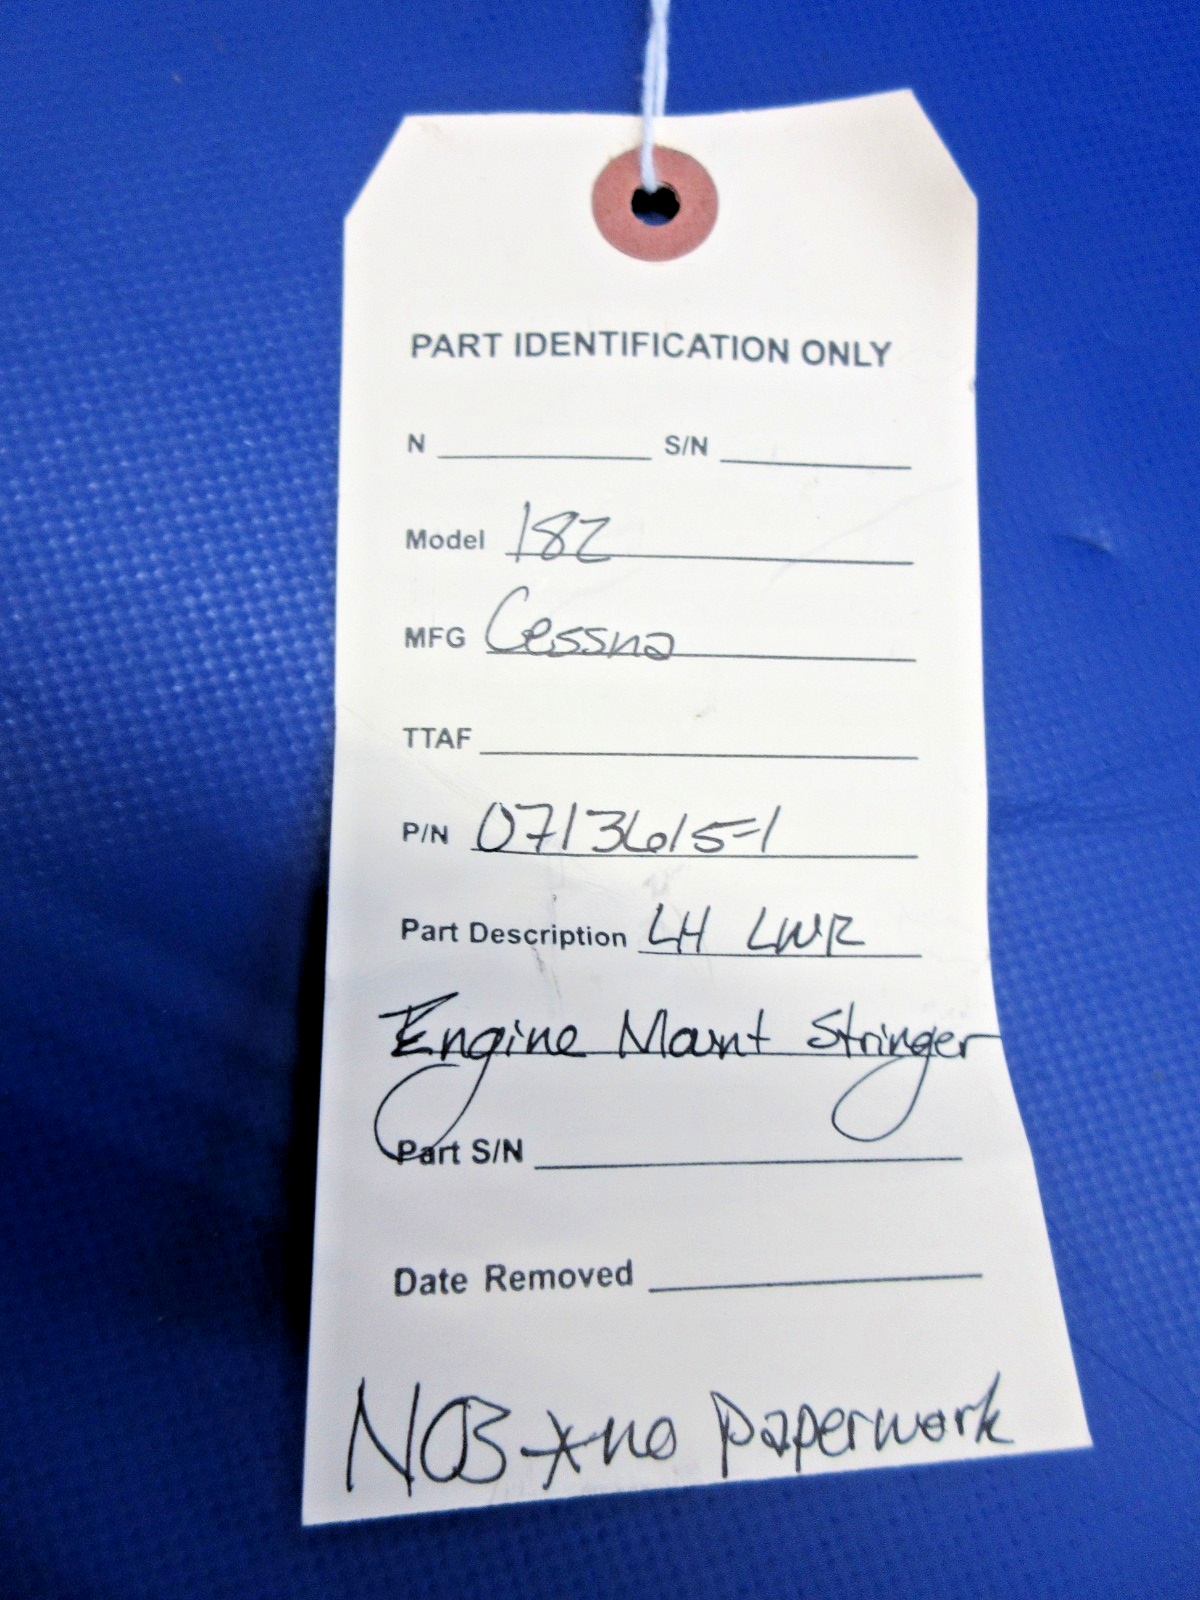 PART IDENTIFICATION ONLY
N S/N
Model 182
MFG Cessna
TTAF
P/N 0713615-1
Part Description LH LWR
Engine Mount Stringer
Part S/N
Date Removed
NOB * no paperwork